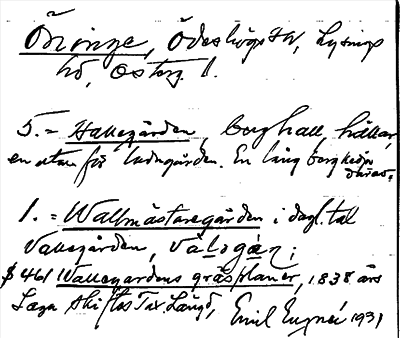 Öringe, Ödeshögs sn, Lysings
hd, Österg. l.
5. = Hallegården, berghall hällar,
en utan för ladugården. En lång bergkedja
1. = Wallmästaregården i dagl. tal
Vallegården, 
$ 461 Wallegårdens gräsplaner, 1838 års
Laga Skiftes Tax. Längd, Emil 1931